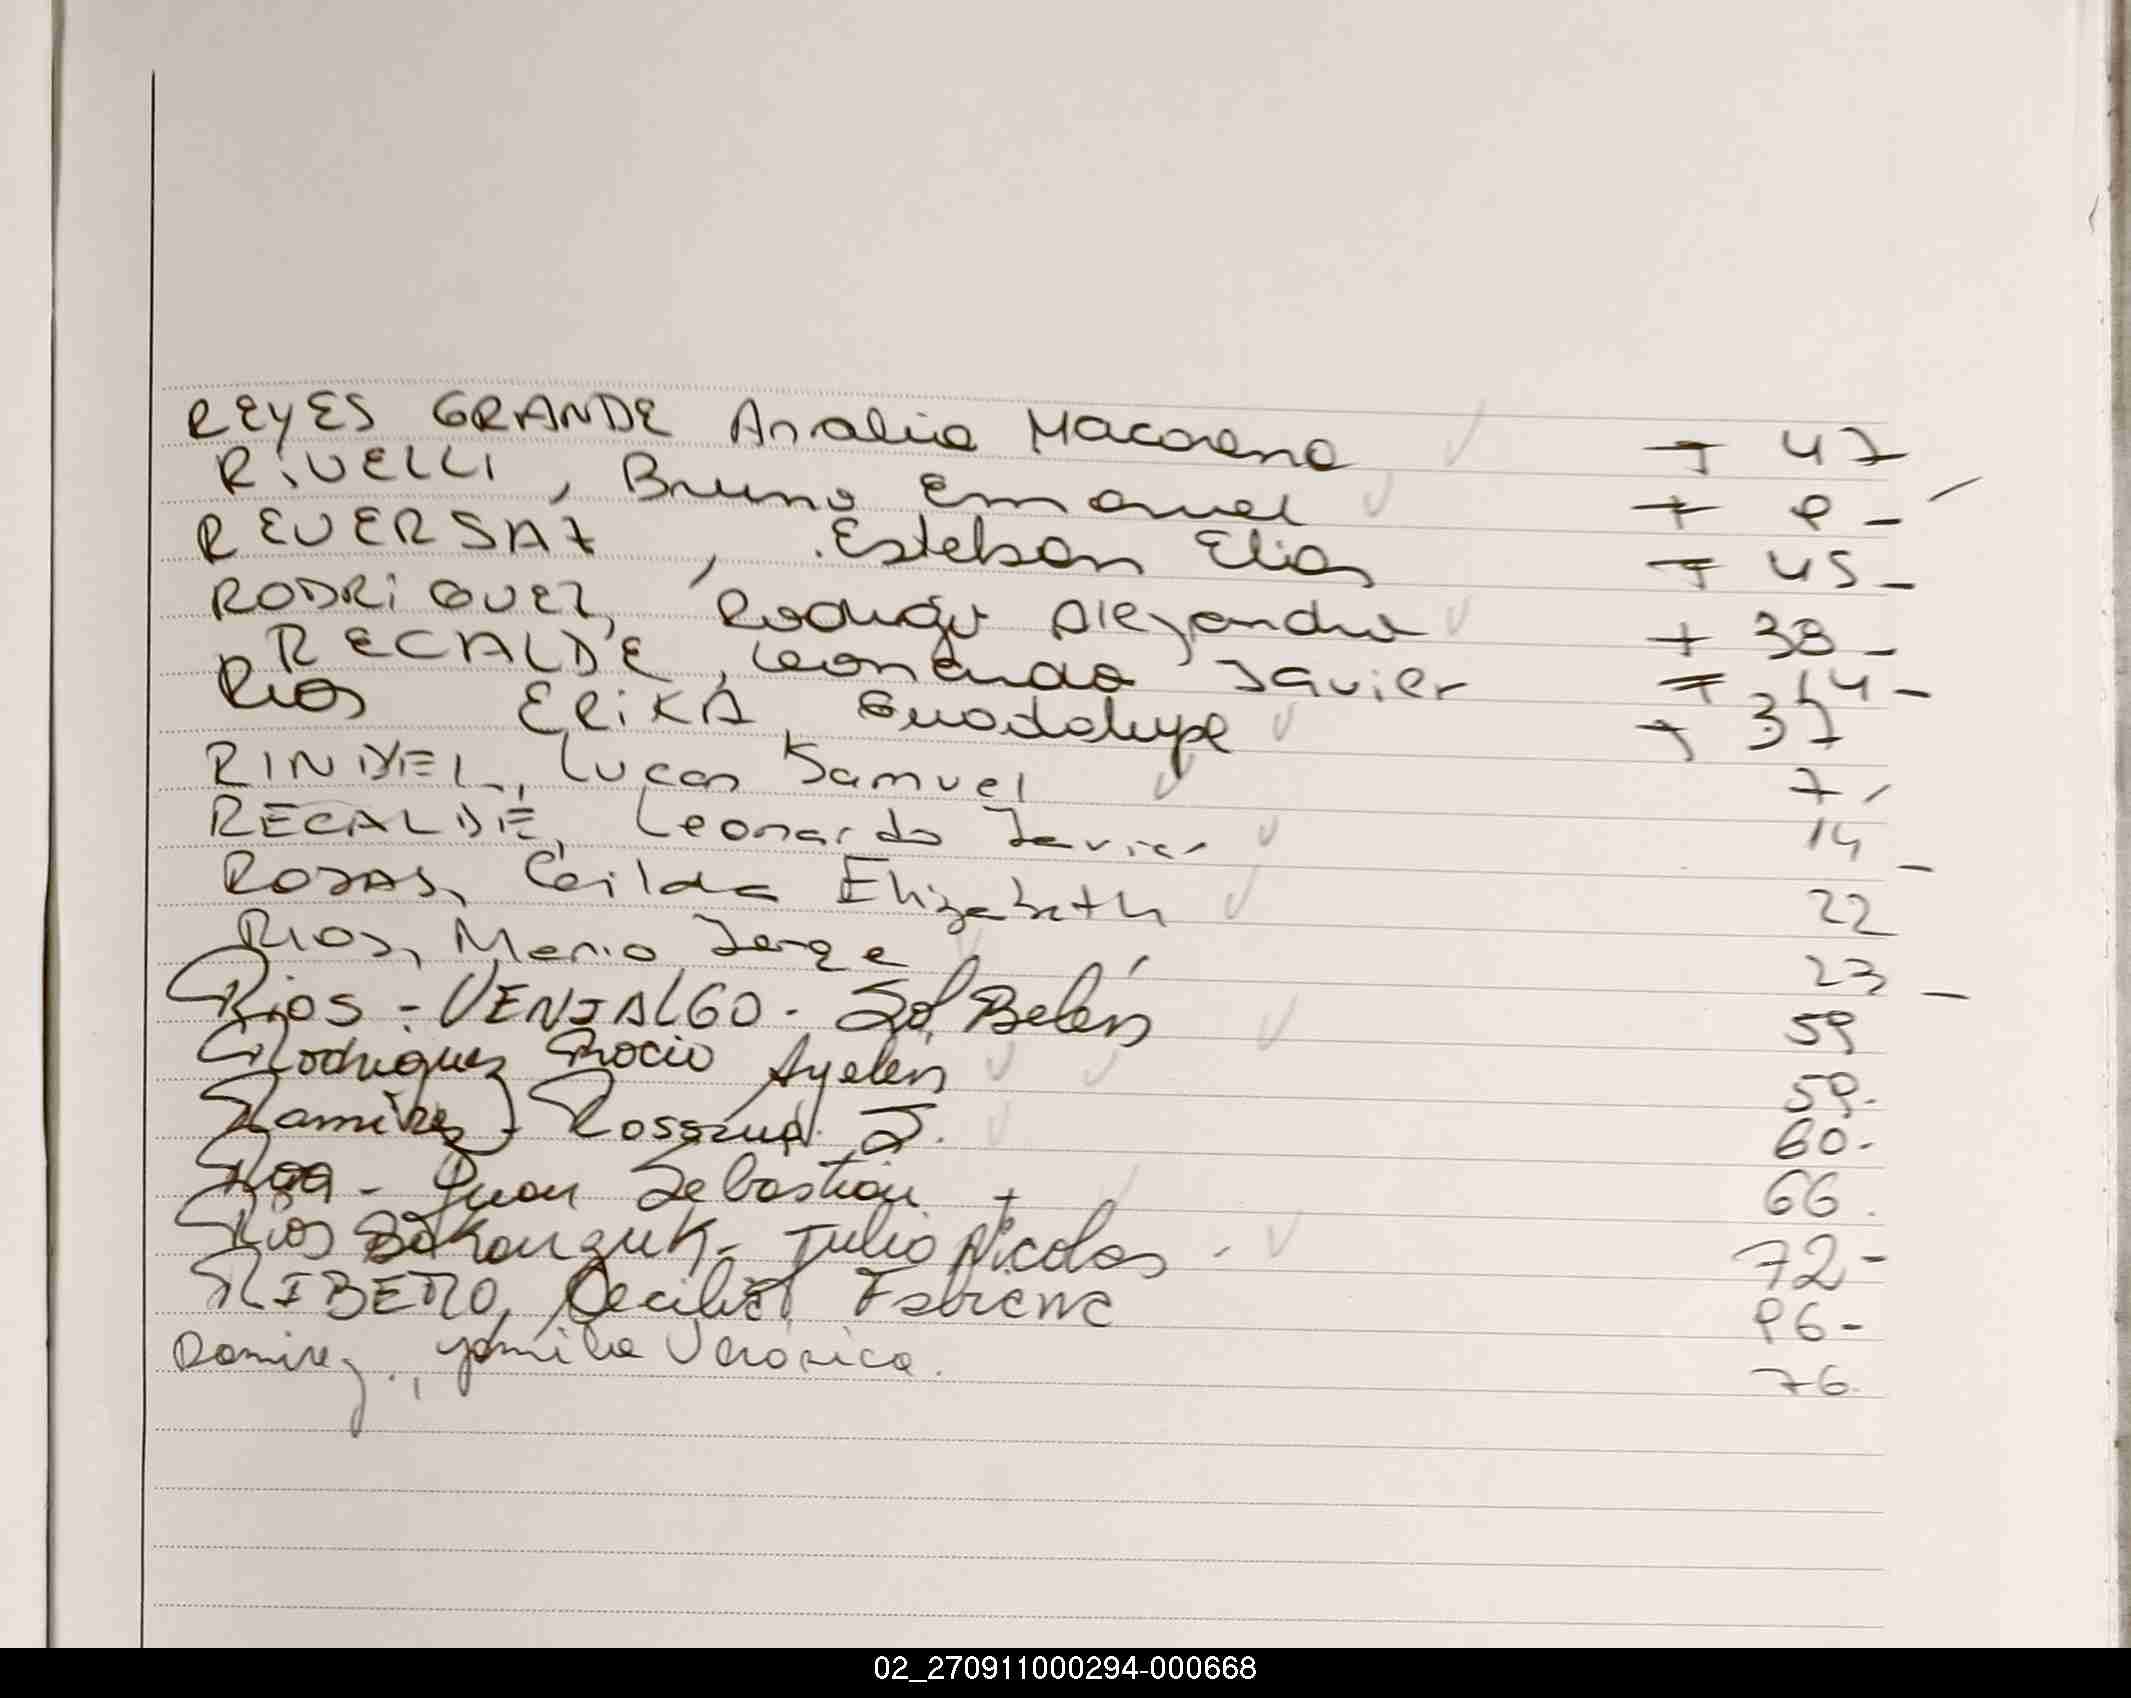 REYES GRANDE Analia Macarena + 47
RIVELLI, Bruno Emanuel + 8 -
REVERSAT, Esteban Elias + 45 -
RODRIGUEZ, Rodrigo Alejandro + 38 -
RECALDE, Leonardo Javier + 14 -
Rios ERIKA Guadalupe + 37
RINDEL, Lucas Samuel 7
RECALDE, Leonardo Javier 14 -
ROJAS, Elizabeth 22
Rios, Mario Jorge 23 -
Rios - VENIALGO - Sol Belén 59
Rodriguez Rocio Ayelén 59.
Ramirez - Rossana J. 60 -
Roa - Juan Sebastian + 66.
Rios - Julio Nicolas - 72 -
RIBEIRO, Cecilia Fabiana 86 -
Ramirez, Yamila Verónica. 76.
02_270911000294-000668